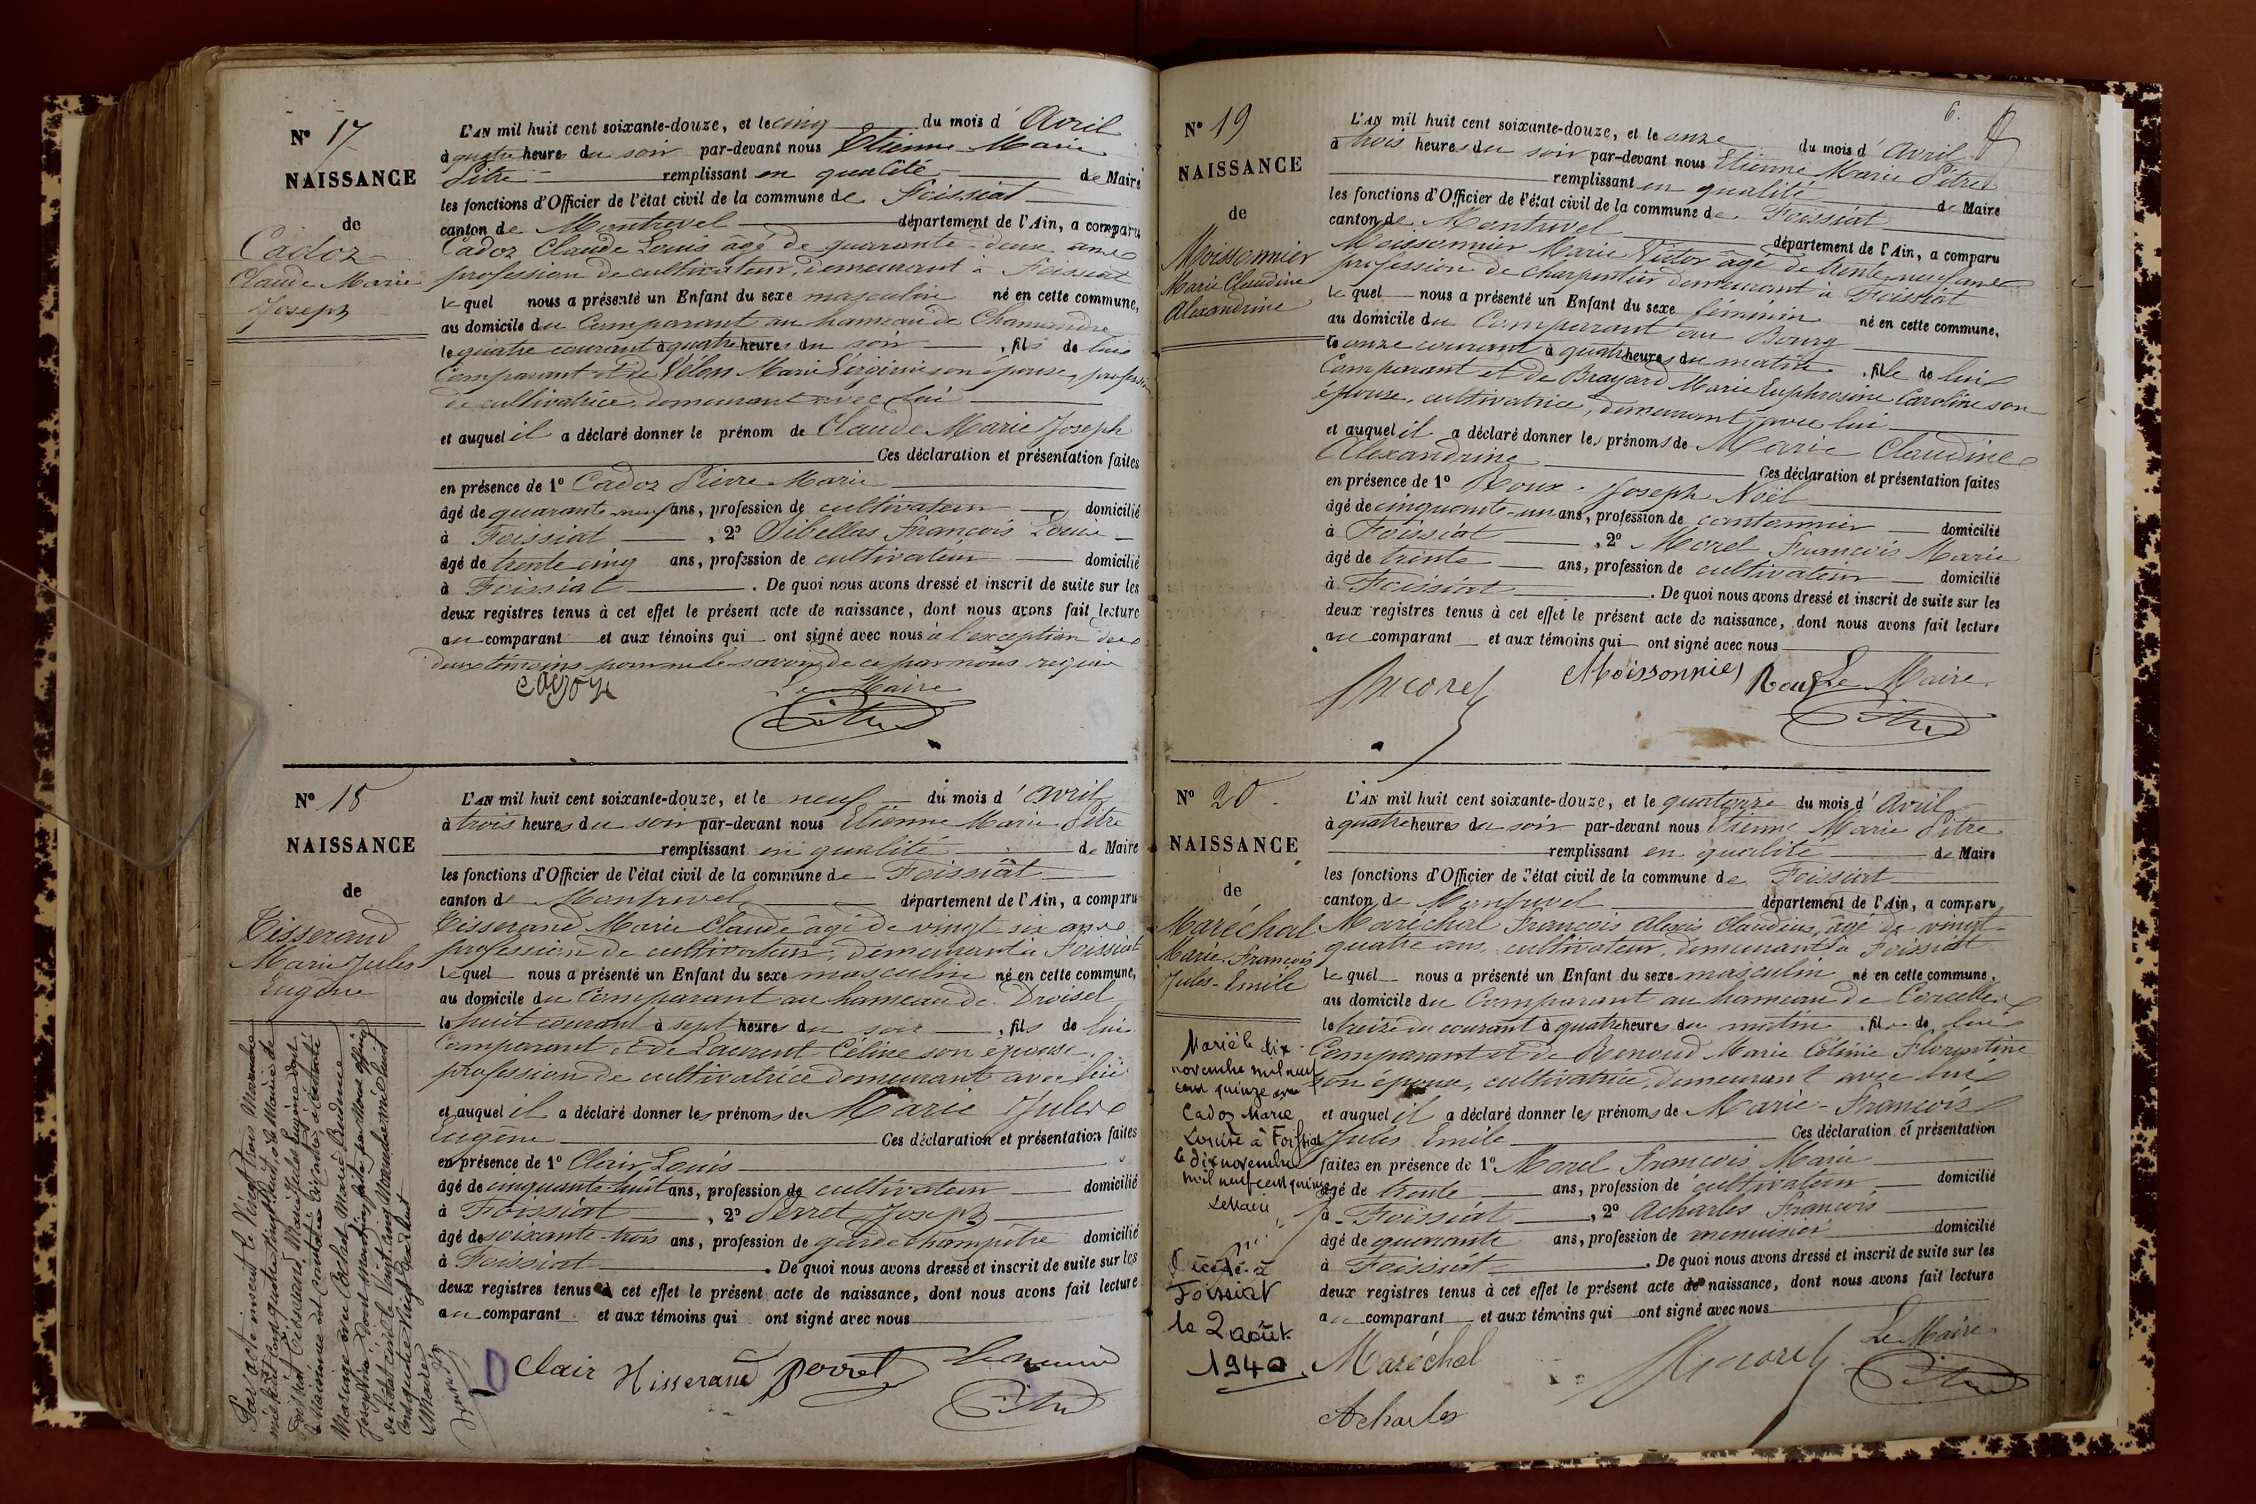 N° 17
NAISSANCE
de
Cadoz
Claude Marie
Joseph
L'AN mil huit cent soixante-douze, et le cinq du mois d'Avril
à quatre heures du soir par-devant nous Etienne Marie
Pitre remplissant en qualité de Maire
les fonctions d'Officier de l'état civil de la commune de Foissiat
canton de Montrevel département de l'Ain, a comparu
Cadoz Claude Louis âgé de quarante-deux ans
profession de cultivateur, demeurant à Foissiat
lequel nous a présenté un Enfant du sexe masculin né en cette commune,
au domicile du Comparant au hameau de Chamandre
le quatre courant à quatre heures du soir, fils de lui
Comparant et de Vélon Marie Virginie son épouse, profession
de cultivatrice demeurant avec lui
et auquel il a déclaré donner le prénom de Claude Marie Joseph
Ces déclaration et présentation faites
en présence de 1° Cadoz Pierre Marie
âgé de quarante-neuf ans, profession de cultivateur domicilié
à Foissiat, 2° Sibellas François Louis
âgé de trente cinq ans, profession de cultivateur domicilié
à Foissiat. De quoi nous avons dressé et inscrit de suite sur les
deux registres tenus à cet effet le présent acte de naissance, dont nous avons fait lecture
au comparant et aux témoins qui ont signé avec nous à l'exception des
deux témoins pour ne le savoir, de ce par nous requis
cadoz
Le Maire
Pitre
N° 18
NAISSANCE
de
Tisserand
Marie Jules
Eugène
L'AN mil huit cent soixante-douze, et le neuf du mois d'Avril
à trois heures du soir par-devant nous Etienne Marie Pitre
remplissant en qualité de Maire
les fonctions d'Officier de l'état civil de la commune de Foissiat
canton de Montrevel département de l'Ain, a comparu
Tisserand Marie Claude âgé de vingt six ans
profession de cultivateur, demeurant à Foissiat
lequel nous a présenté un Enfant du sexe masculin né en cette commune,
au domicile du Comparant au hameau de Droisel
le huit courant à sept heures du soir, fils de lui
Comparant et de Laurent Céline son épouse,
profession de cultivatrice demeurant avec lui
et auquel il a déclaré donner les prénoms de Marie Jules
Eugène Ces déclaration et présentation faites
en présence de 1° Clair Louis
âgé de cinquante-huit ans, profession de cultivateur domicilié
à Foissiat, 2° Perret Joseph
âgé de soixante-trois ans, profession de garde champêtre domicilié
à Foissiat. De quoi nous avons dressé et inscrit de suite sur les
deux registres tenus à cet effet le présent acte de naissance, dont nous avons fait lecture
au comparant et aux témoins qui ont signé avec nous
Clair Tisserand Perret Le maire
Pitre
Par acte inscrit le Vingt trois Novembre
mil huit cent quatre vingt huit à la Mairie de
Foissiat, Tisserand, Marie Jules Eugène dont
la Naissance est Constatée Ci-contre, a Contracté
Mariage avec Cachet Marie Prudence
Le Maire
N° 19
NAISSANCE
de
Moissonnier
Marie Claudine
Alexandrine
6.
L'AN mil huit cent soixante-douze, et le onze du mois d'Avril
à trois heures du soir par-devant nous Etienne Marie Pitre
remplissant en qualité de Maire
les fonctions d'Officier de l'état civil de la commune de Foissiat
canton de Montrevel département de l'Ain, a comparu
Moissonnier Marie Victor âgé de trente-neuf ans
profession de charpentier demeurant à Foissiat
lequel nous a présenté un Enfant du sexe féminin né en cette commune,
au domicile du Comparant au Bourg
le onze courant à quatre heures du matin, fille de lui
Comparant et de Brayard Marie Euphrosine Caroline son
épouse, cultivatrice, demeurant avec lui
et auquel il a déclaré donner les prénoms de Marie Claudine
Alexandrine Ces déclaration et présentation faites
en présence de 1° Roux Joseph Noël
âgé de cinquante-un ans, profession de cantonnier domicilié
à Foissiat, 2° Morel François Marie
âgé de trente ans, profession de cultivateur domicilié
à Foissiat. De quoi nous avons dressé et inscrit de suite sur les
deux registres tenus à cet effet le présent acte de naissance, dont nous avons fait lecture
au comparant et aux témoins qui ont signé avec nous
Morel Moissonnier Roux Le Maire
Pitre
N° 20
NAISSANCE
de
Maréchal
Marie-François
Jules-Emile
L'AN mil huit cent soixante-douze, et le quatorze du mois d'Avril
à quatre heures du soir par-devant nous Etienne Marie Pitre
remplissant en qualité de Maire
les fonctions d'Officier de l'état civil de la commune de Foissiat
canton de Montrevel département de l'Ain, a comparu
Maréchal François Alexis Claudius, âgé de vingt-
quatre ans, cultivateur, demeurant à Foissiat
lequel nous a présenté un Enfant du sexe masculin né en cette commune,
au domicile du Comparant au hameau de Corcelles
le treize du courant à quatre heures du matin, fils de lui
Comparant et de Renoud Marie Céline Florentine
son épouse, cultivatrice, demeurant avec lui
et auquel il a déclaré donner les prénoms de Marie-François
Jules Emile Ces déclaration et présentation
faites en présence de 1° Morel François Marie
âgé de trente ans, profession de cultivateur domicilié
à Foissiat, 2° Acharles François
âgé de quarante ans, profession de menuisier domicilié
à Foissiat. De quoi nous avons dressé et inscrit de suite sur les
deux registres tenus à cet effet le présent acte de naissance, dont nous avons fait lecture
au comparant et aux témoins qui ont signé avec nous
Maréchal Morel Le Maire
Acharles Pitre
Marié le dix
novembre mil neuf
cent quinze avec
Cadoz Marie
Louise à Foissiat
le dix novembre
mil neuf cent quinze
Le Maire
Décédé à
Foissiat
le 2 août
1940.